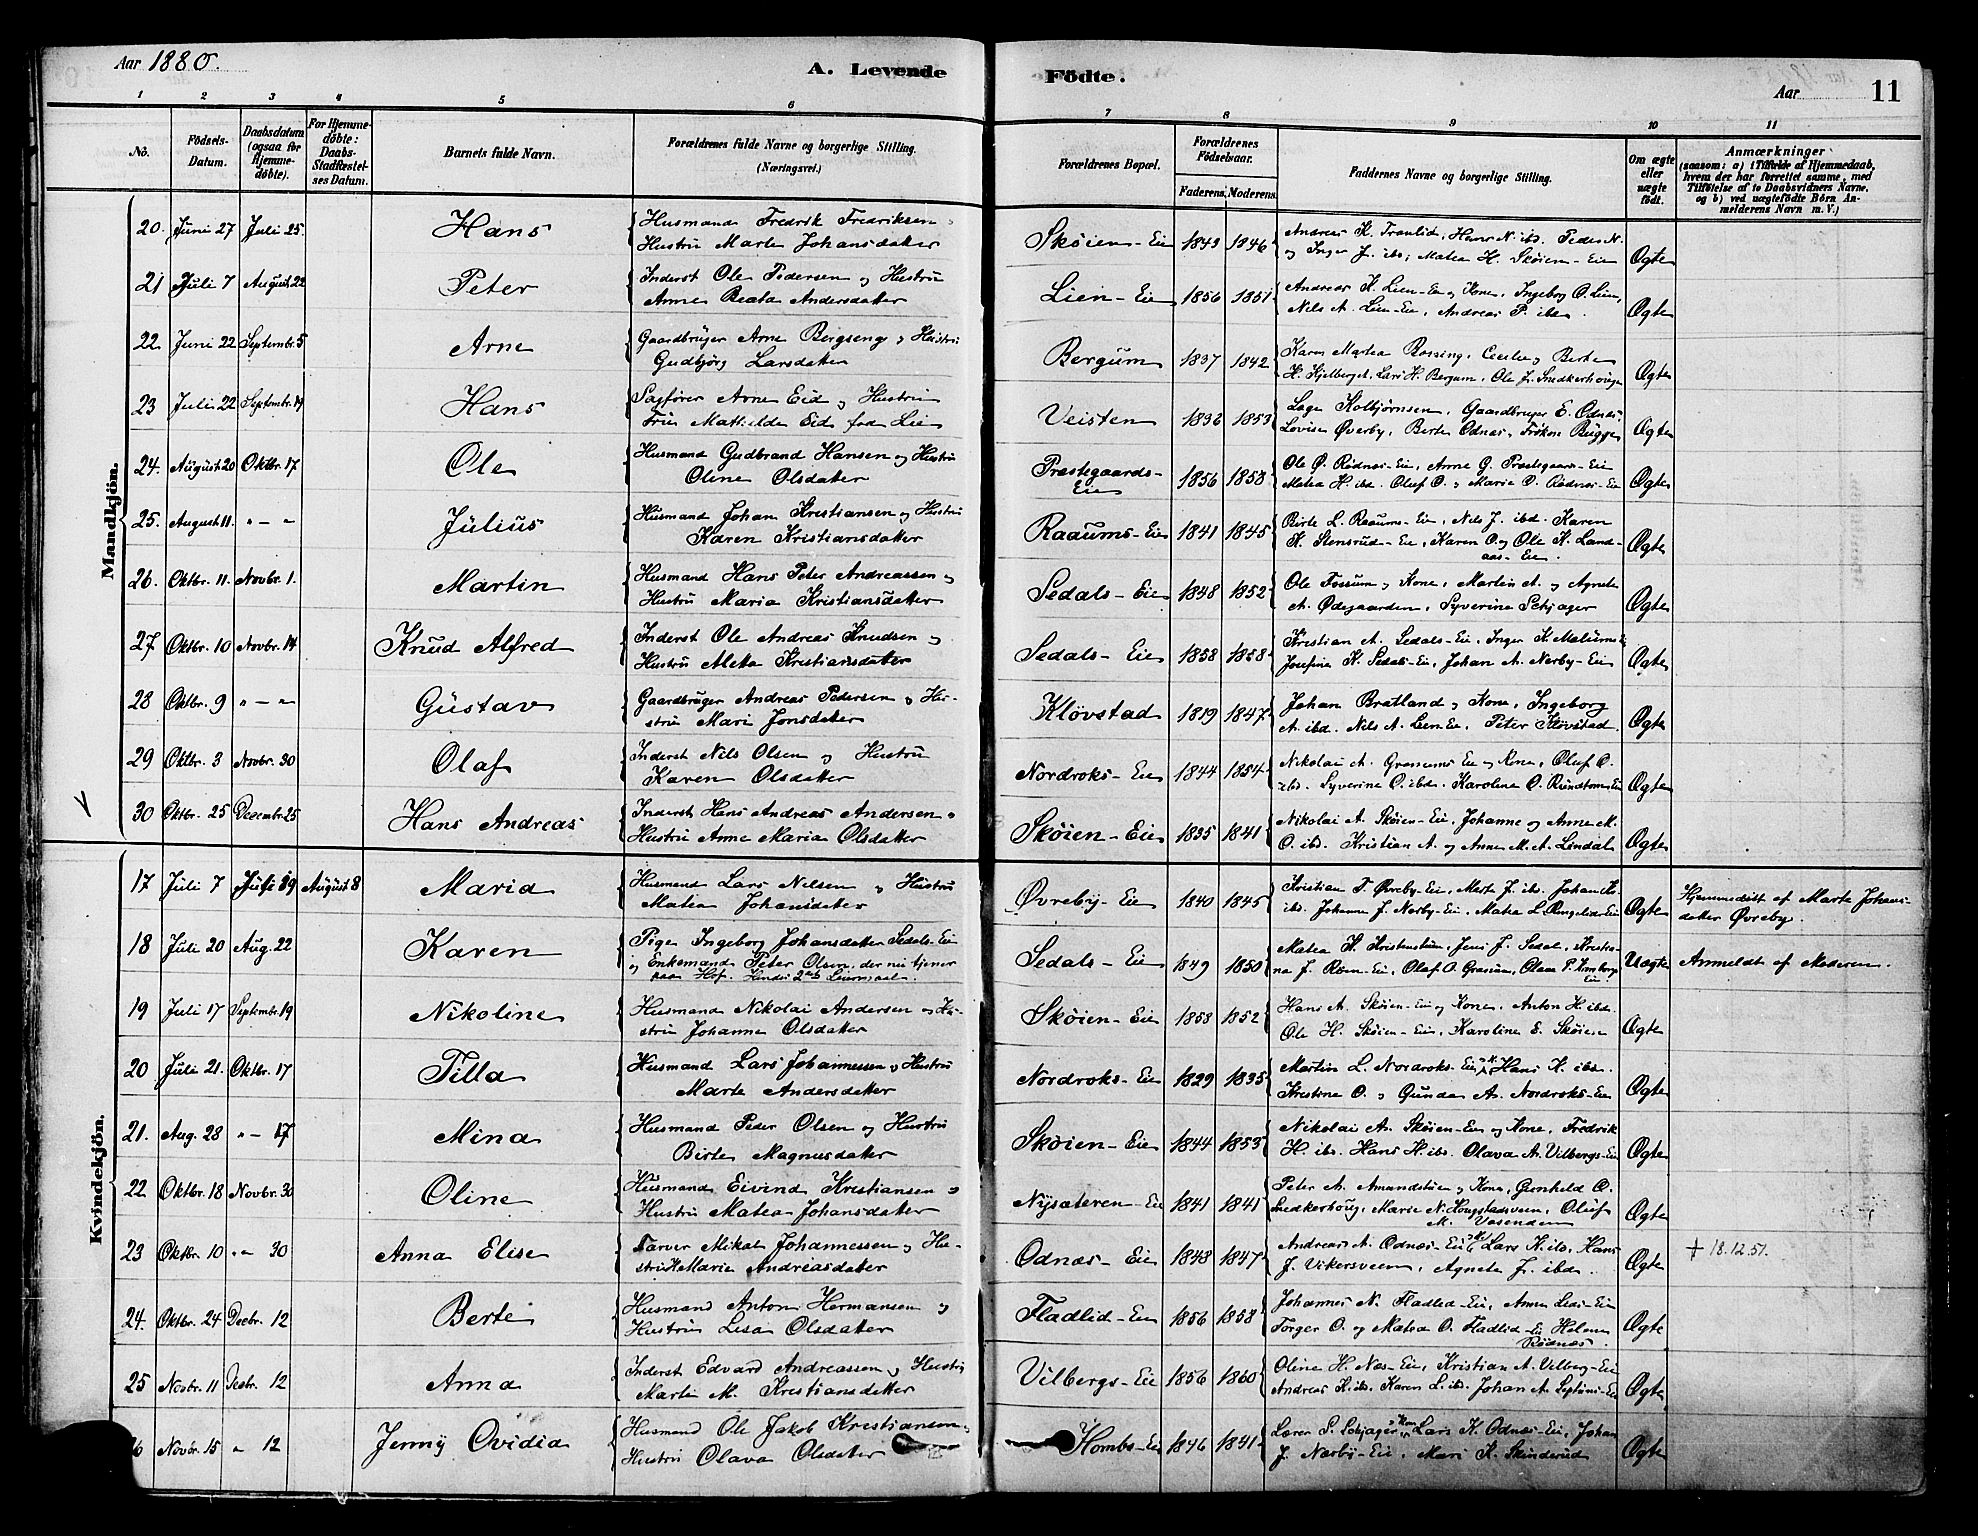 Aar 1880.
A. Levende Födte.
Aar 11
1 2 3 4 5 6 7 8 9 10 11
No.
Födsels-Datum.
Daabsdatum (ogsaa for Hjemme-döbte).
For Hjemme-döbte: Daabs-Stadfæstel-ses Datum.
Barnets fulde Navn.
Forældrenes fulde Navne og borgerlige Stilling. (Næringsvei.)
Forældrenes Bopæl.
Forældrenes Födselsaar.
Faderens. Moderens.
Faddernes Navne og borgerlige Stilling.
Om ægte eller uægte födt.
Anmærkninger
(saasom: a) i Tilfælde af Hjemmedaab, hvem der har forrettet samme, med Tilföielse af to Daabsvidners Navne. og b) ved uægtefödte Börn Anmelderens Navn m. V.)
Mandkjön.
20. Juni 27 Juli 25 Hans
Husmand Fredrik Fredriksen
Hustru Marte Johansdatter
Skøien-Eie 1843 1846
Andreas K. Tranlid, Hans N. ibd. Peder N.
og Inger J. ibd; Matea H. Skøien-Eie
Ægte
21 Juli 7 August 22 Peter
Inderst Ole Pedersen og Hustru
Anne Beata Andersdatter
Lien-Eie 1856 1851
Andreas K. Lien-Eie og Kone, Ingeborg O. Lien,
Nils A. Lien-Eie, Andreas P. ibd.
Ægte
22 Juni 22 Septembr. 5 Arne
Gaardbruger Arne Bergseng og Hustru
Gudbjørg Larsdatter
Bergum 1837 1842
Karen Martea Rossing, Cecilie og Berte
H. Kjelberget, Lars H. Bergum, Ole J. Snedkerhougen
Ægte
23 Juli 22 Septembr. 19 Hans
Sagfører Arne Eid og Hustru
Fru Mathilde Eid født Lie
Veisten 1832 1853
Lage Kolbjørnsen, Gaardbruger E. Odnæs,
Lovise Øverby, Berte Odnæs, Frøken Bugge
Ægte
24. August 20 Oktbr. 17 Ole
Husmand Gudbrand Hansen og Hustru
Oline Olsdatter
Præstegaards-Eie 1856 1858
Ole Ø. Rødnæs-Eie, Anne G. Præstegaards-Eie
Matea H. ibd. Oluf O. og Marie O. Rødnæs-Eie
Ægte
25. August 11. " - " Julius
Husmand Johan Kristiansen og Hustru
Karen Kristiansdatter
Raaums-Eie 1841 1845
Birte L. Raaums-Eie, Nils J. ibd. Karen
K. Stensrud-Eie, Karen O. og Ole K. Land-
aas-Eie.
Ægte
26. Oktbr. 11. Novbr. 1. Martin
Husmand Hans Peter Andreassen og
Hustru Maria Kristiansdatter
Sedals-Eie 1848 1852
Ole Fossum og Kone, Martin A. og Agnete
A. Ødegaarden, Syverine Schjager
Ægte
27. Oktbr. 10 Novbr. 14 Knud Alfred
Inderst Ole Andreas Knudsen og
Hustru Aletta Kristiansdatter
Sedals-Eie 1858 1858
Kristian A. Sedals-Eie, Inger K. Malums
Josefine K. Sedals-Eie, Johan A. Nærby-Eie
Ægte
28 Oktbr. 9 " - " Gustav
Gaardbruger Andreas Pedersen og Hu-
stru Mari Jonsdatter
Kløvstad 1819 1847
Johan Bratland og Kone, Ingeborg
A. ibd. Nils A. Lien-Eie, Peter Kløvstad.
Ægte
29 Oktbr. 3 Novbr. 30 Olaf
Inderst Nils Olsen og Hustru
Karen Olsdatter
Nordroks-Eie 1844 1854
Nikolai A. Granums Eie og Kone, Oluf O.
ibd. Syverine O. ibd. Karoline O. Rundtom-Eie
Ægte
30 Oktbr. 25 Decembr. 25 Hans Andreas
Inderst Hans Andreas Andersen
Hustru Anne Maria Olsdatter
Skøien-Eie 1835 1841
Nikolai A. Skøien-Eie, Johanne og Anne M.
O. ibd. Kristian A. og Anne M. A. Lindal
Ægte
Kvindekjön.
17 Juli 7 Juli 19 August 8 Maria
Husmand Lars Nilsen og Hustru
Matea Johansdatter
Øvreby-Eie 1840 1845
Kristian T. Øvreby-Eie, Marte J. ibd. Johan K.
ibd. Johanne J. Nærby-Eie, Matea L. Rngelid-Eie
Ægte
Hjemmedøbt af Marte Johans-
datter Øvreby.
18 Juli 20 Aug. 22 Karen
Pige Ingeborg Johansdatter Sedals-Eie
og Enkemand Peter Olsen, der nu tjener
paa Hof. Hendes 2det Leiermaal.
Sedals-Eie 1849 1850
Matea K. Kristenstuen, Jens J. Sedal, Kristia-
na J. Røen-Eie, Olaf O. Granum, Olava P.
Eie
Uægte
Anmeldt af Moderen.
19 Juli 17 Septembr. 19 Nikoline
Husmand Nikolai Andersen og Hu-
stru Johanne Olsdatter
Skøien-Eie 1858 1852
Hans A. Skøien-Eie og Kone, Anton H. ibd.
Ole H. Skøien-Eie, Karoline E. Skøien
Ægte
20 Juli 21. Oktbr. 17 Tilla
Husmand Lars Johannessen og Hustru
Marte Andersdatter
Nordroks-Eie 1829 1835
Martin L. Nordroks-Eie, Hans K. ibd.
Kristine O. og Gunda A. Nordroks-Eie
Ægte
21. Aug. 28 " - 17 Mina
Husmand Peder Olsen og Hustru
Birte Magnusdatter
Skøien-Eie 1844 1853
Nikolai A. Skøien-Eie og Kone, Fredrik
H. ibd. Hans H. ibd. Olava A. Vilbergs-Eie
Ægte
22 Oktbr. 18 Novbr. 30 Oline
Husmand Eivind Kristiansen og
Hustru Matea Johansdatter
Nysæteren-Eie 1841 1841
Peter A. Amundstuen og Kone, Gunhild O.
Snedkerhoug, Marie N. Hougstadsveen, Oluf
M. Vasenden
Ægte
23 Oktbr. 10 " " 30 Anna Elise
Farver Mikal Johannessen og Hu-
stru Maria Andreasdatter
Odnæs-Eie 1848 1847
Andreas A. Odnæs-Eie, Lars K. ibd. Hans
J. Vikersveen, Agnete J. ibd.
Ægte
† 18.12.51.
24. Oktbr. 24 Decbr. 12 Berte
Husmand Anton Hermansen og
Hustru Lisa Olsdatter
Fladlid-Eie 1856 1858
Johannes N. Fladlid-Eie, Anne Lids-Eie
Torger O. og Matea O. Fladlid-Eie Helene
Rødnæs
Ægte
25 Novbr. 11 Decbr. 12 Anna
Inderst Edvard Andreassen og Hustru
Marte M. Kristiansdatter
Vilbergs-Eie 1856 1860
Oline H. Næs-Eie, Kristian A. Vilberg-Eie
Andreas K. ibd. Karen L. ibd. Johan A. Septuns-Eie
Ægte
26 Novbr. 15 " 12 Jenny Ovidia
Husmand Ole Jakob Kristiansen
Hustru Olava Olsdatter
Hombs-Eie 1846 1841
Lærer S. Schjager og Kone, Lars K. Odnæs-Eie, Johan
J. Nærby-Eie, Mari K. Skinderud
Ægte